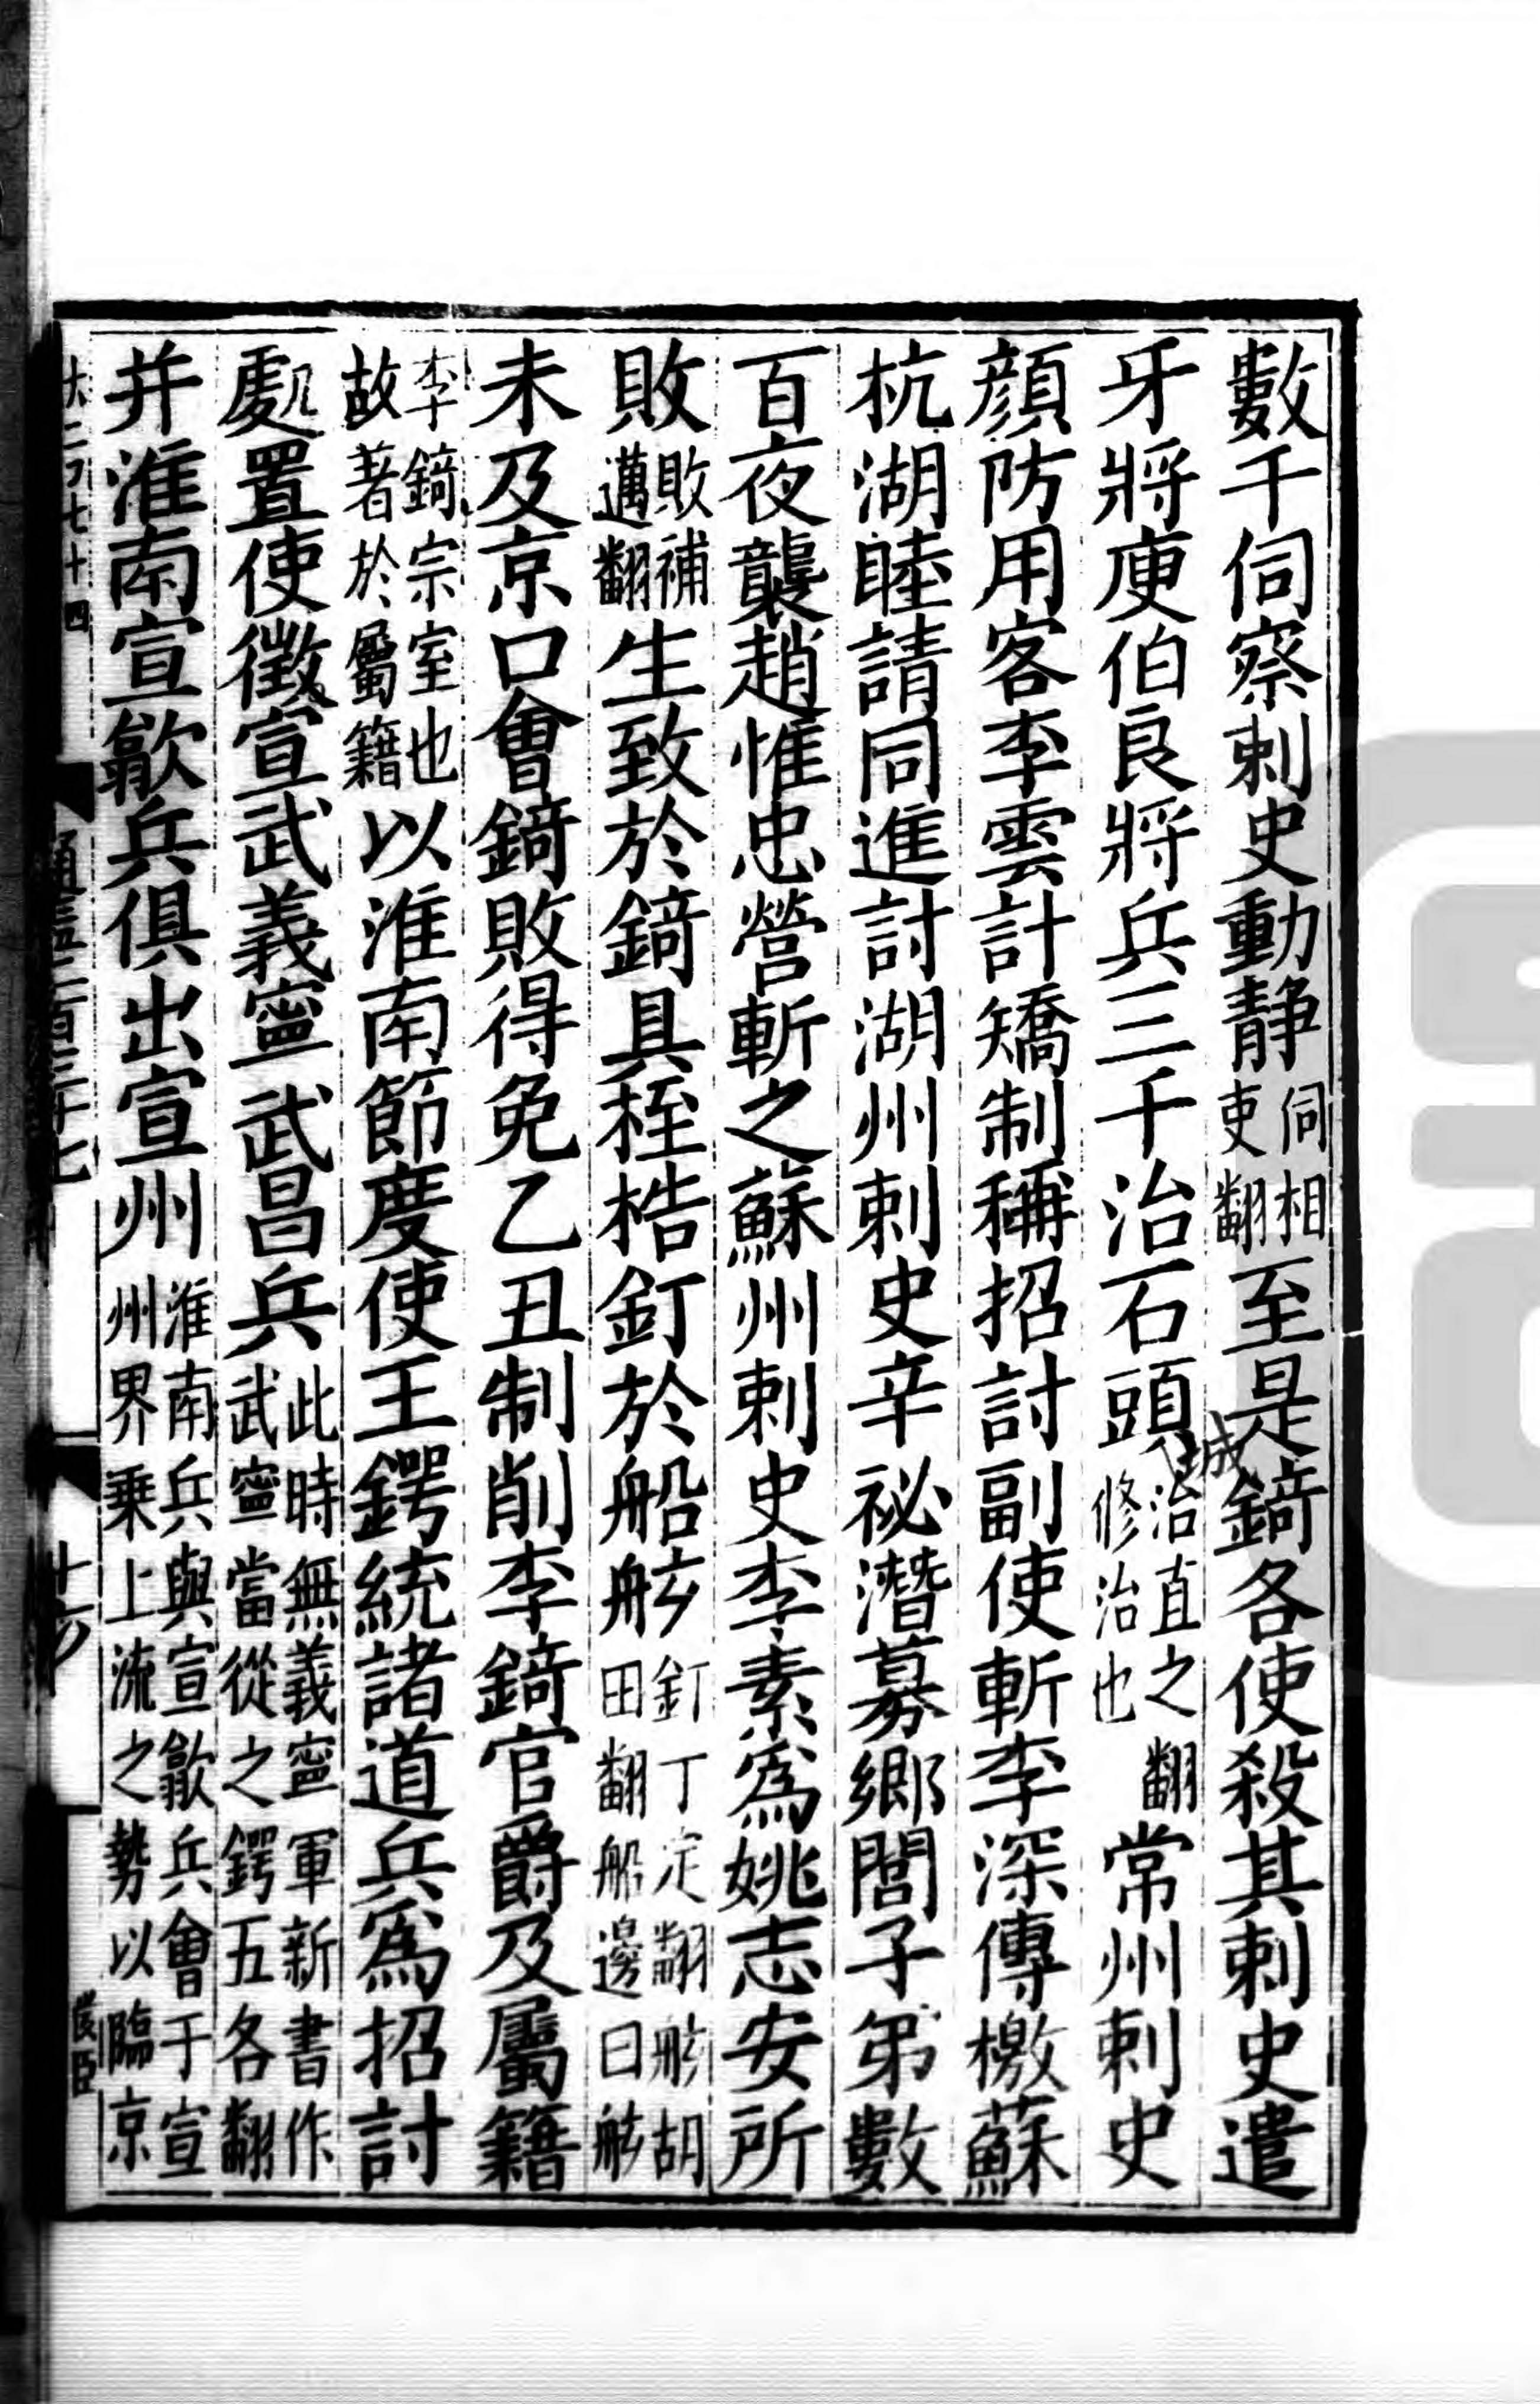 數千伺察刺史動静伺相吏翻至是錡各使殺其刺史遣
牙將庾伯良將兵三千治石頭城治直之翻修治也常州刺史
顔防用客李雲計矯制稱招討副使斬李深傳檄蘇
杭湖睦請同進討湖州刺史辛祕潛募鄉閭子弟數
百夜襲趙惟忠營斬之蘇州刺史李素爲姚志安所
敗敗補邁翻生致於錡具桎梏釘於船舷釘丁定翻舷胡田翻船邊曰舷
未及京口會錡敗得免乙丑制削李錡官爵及屬籍
李錡宗室也故著於屬籍以淮南節度使王鍔統諸道兵爲招討
處置使徵宣武義寧武昌兵此時無義寧軍新書作武寧當從之鍔五各翻
并淮南宣歙兵俱出宣州淮南兵與宣歙兵會于宣州界乗上流之勢以臨京
通鑑二百三十七